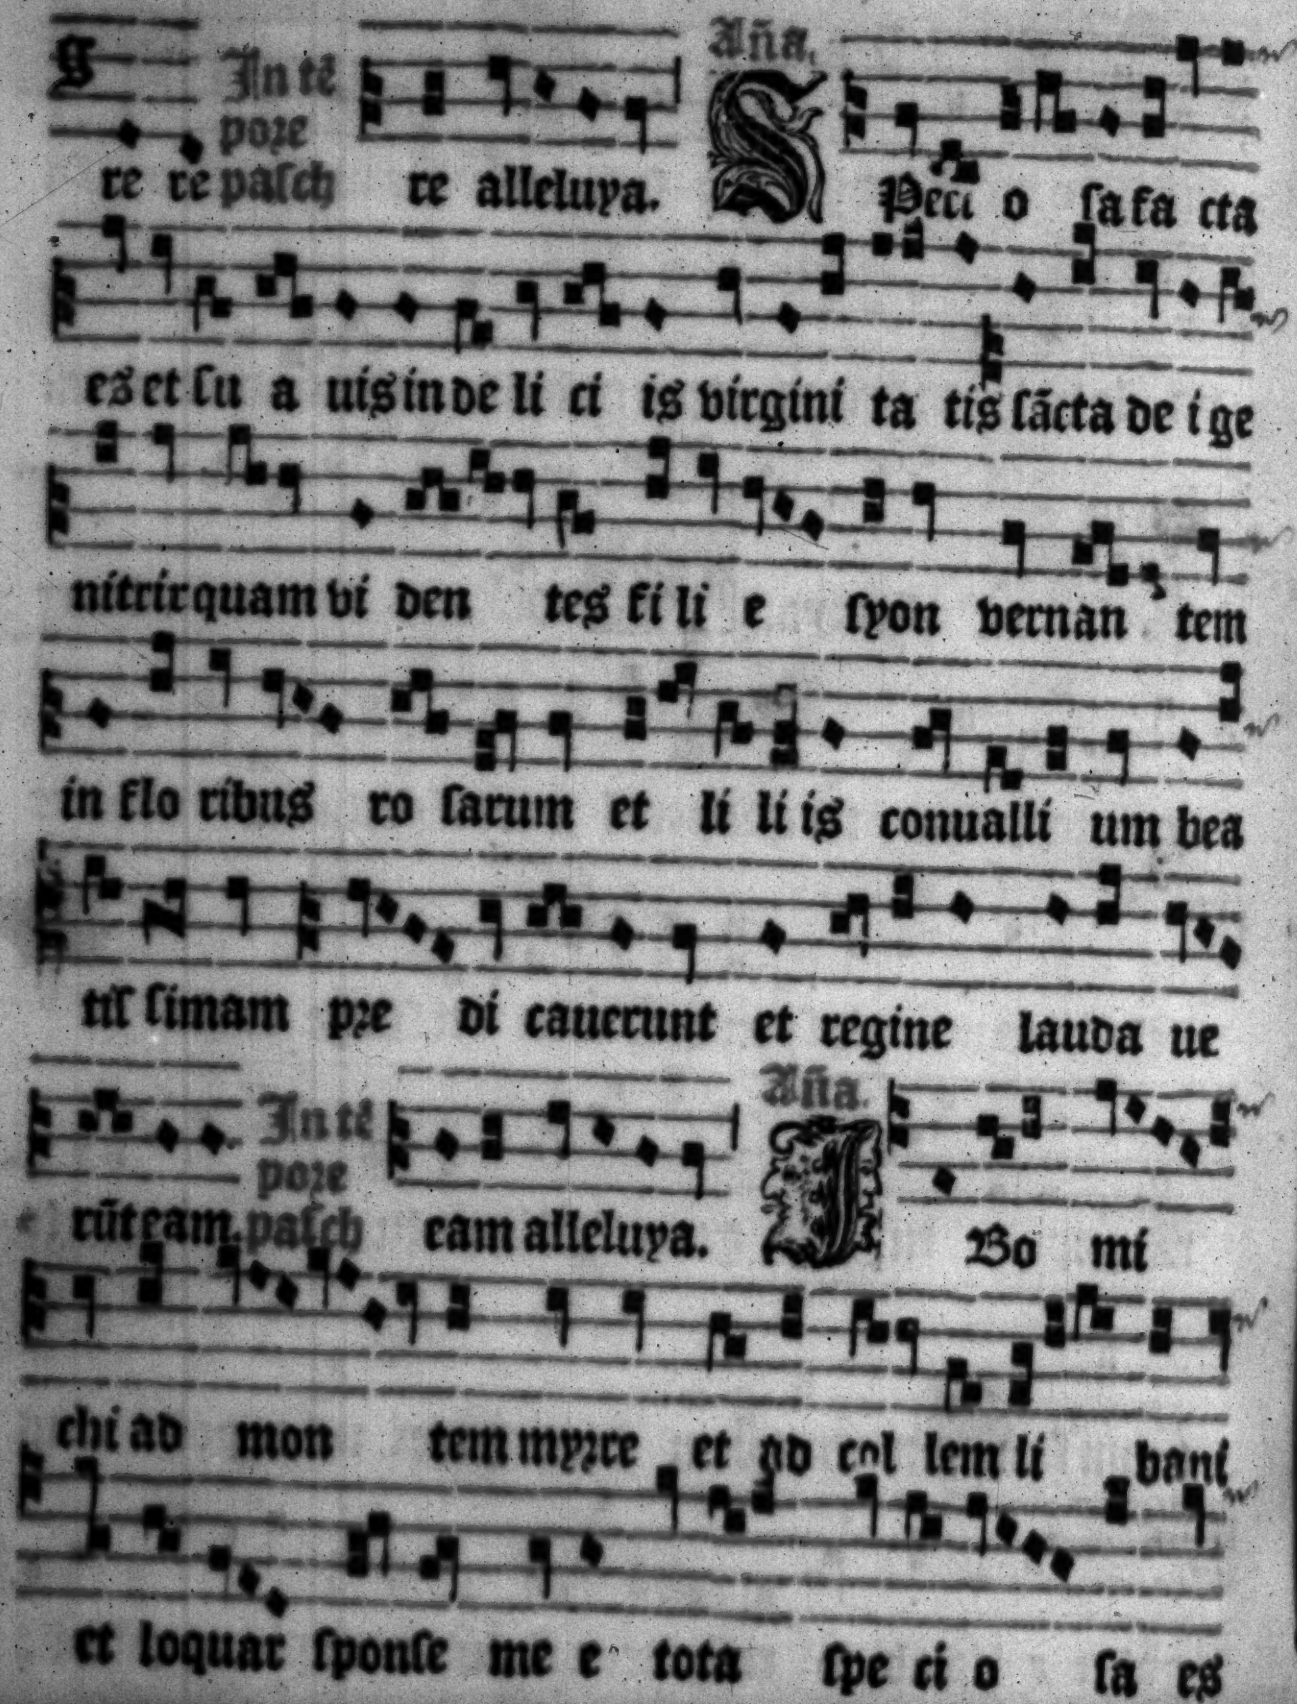 g In tẽ Aña.
poꝛe
re re paſch re alleluya. SPeci o ſa fa cta
es et ſu a uis in de li ci is virgini ta tis ſãcta de i ge
nitrix quam vi den tes fi li e ſyon vernan tem
in flo ribus ro ſarum et li li is conualli um bea
tiſ ſimam pꝛe di cauerunt et regine lauda ue
In tẽ Aña.
poꝛe
rũt eam. paſch eam alleluya. IBo mi
chi ad mon tem myꝛre et ad col lem li bani
et loquar ſponſe me e tota ſpe ci o ſa es